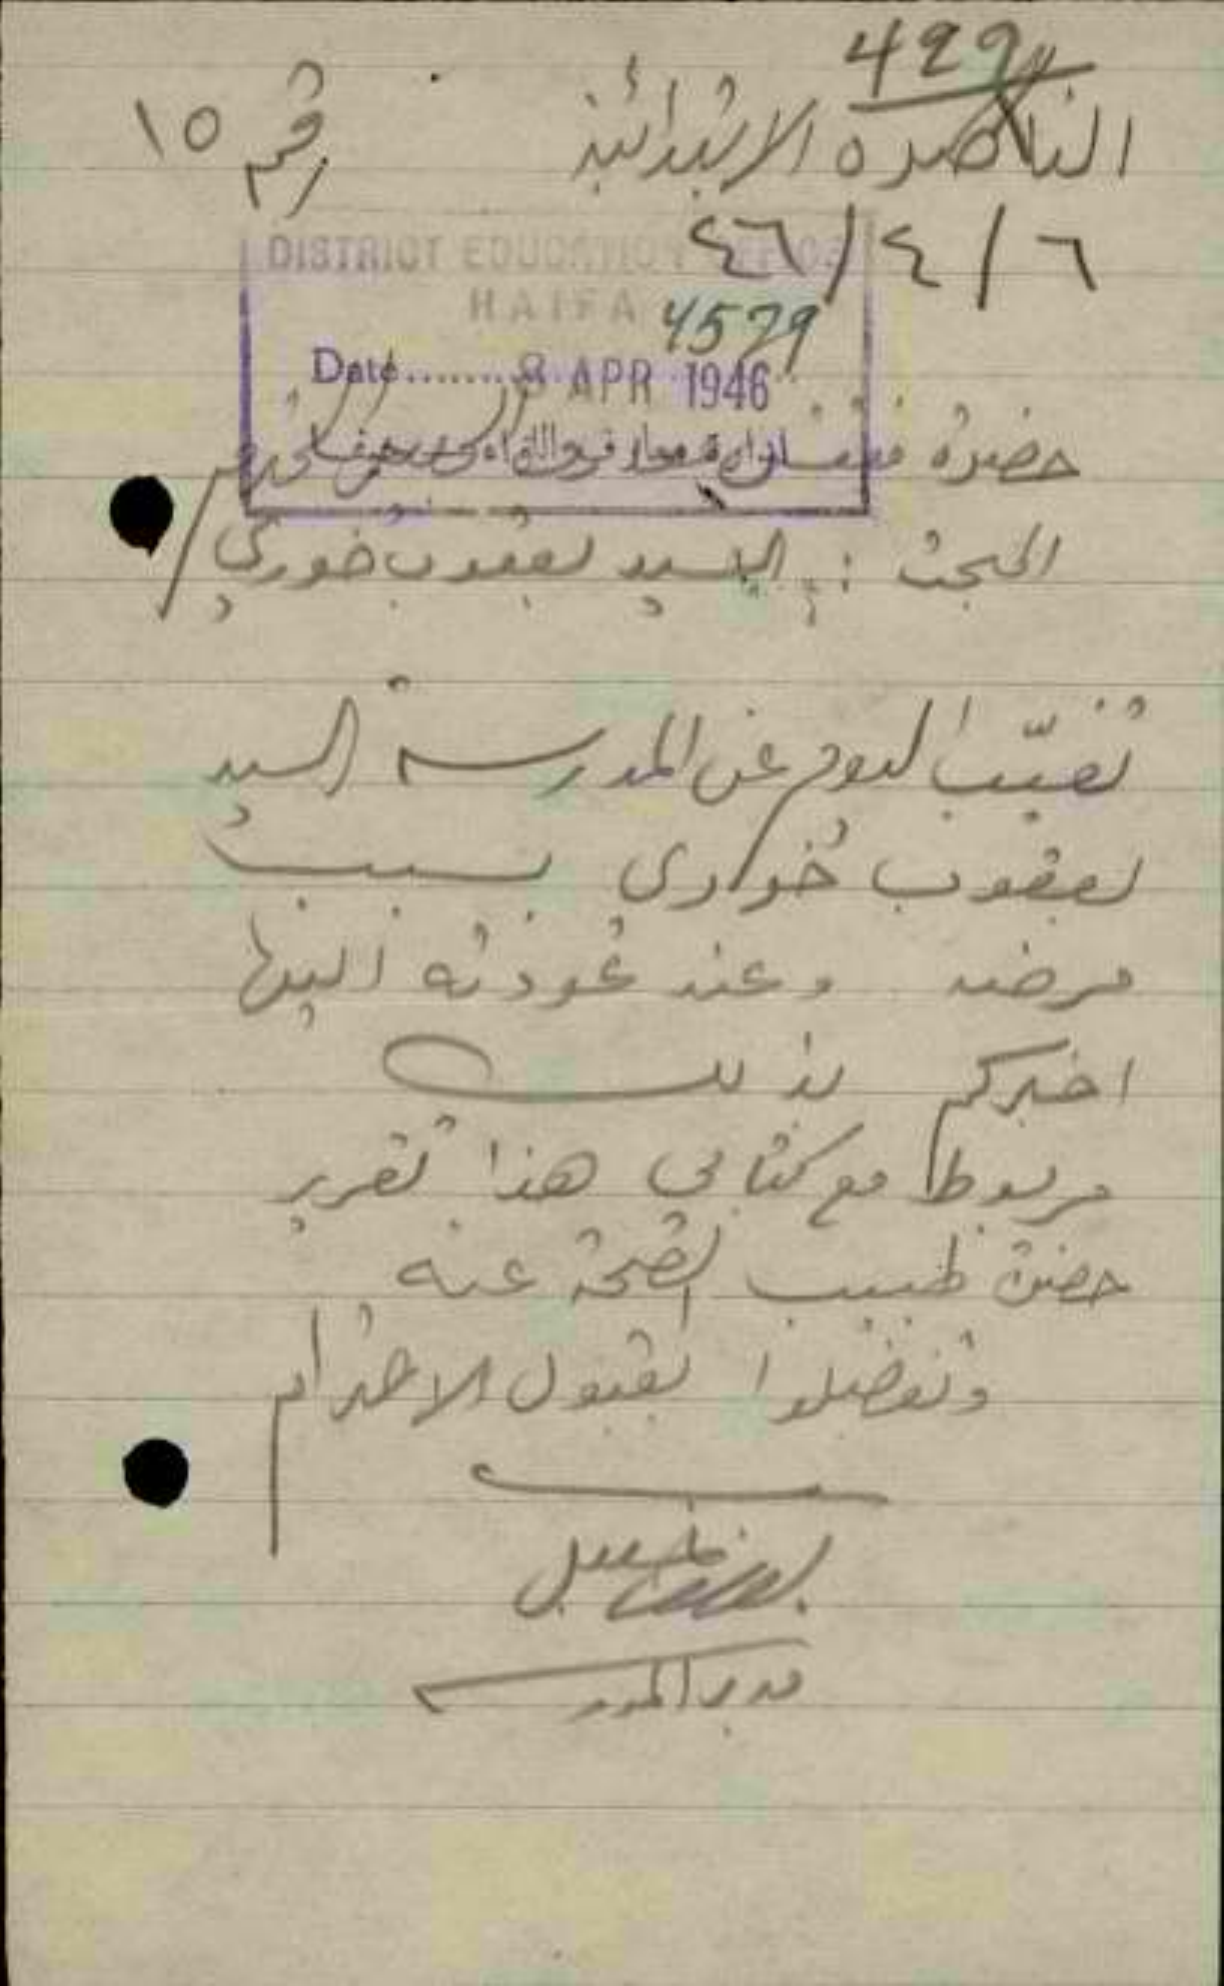 499
الناصرة الابتدائية رقم ١٥
٤٦/٤/٦
DISTRICT EDUCATION OFFICE
HAIFA
4579
Date........ 8 APR 1946
حضرة مفتش معارف لواء الجليل حيفا المحترم
المبحث : السيد يعقوب خوري
تغيّب اليوم عن المدرسة السيد
يعقوب خوري بسبب
مرضه وعند عودته اليها
اخبركم بذلك
مربوطا مع كتابي هذا تقرير
حضرة طبيب الصحة عنه
وتفضلوا بقبول الاحترام
مدير المدرسة